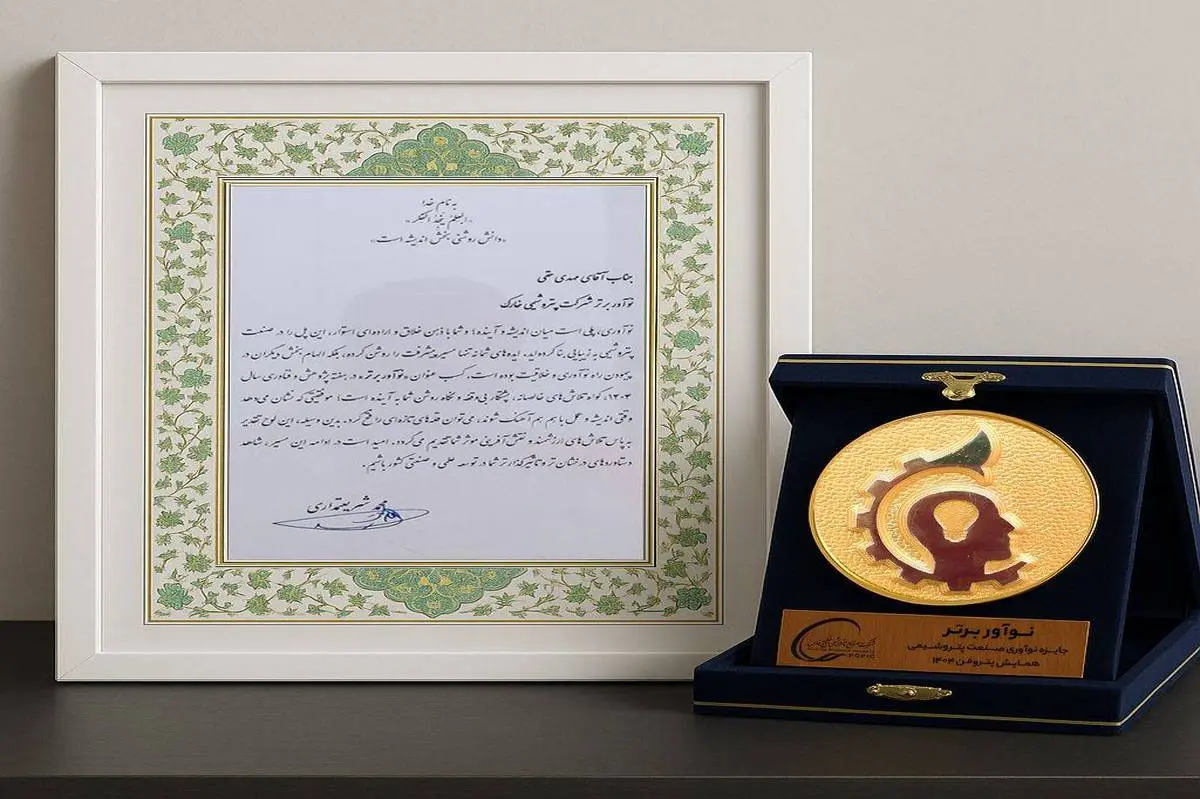 به نام خدا
«العلم ینجد الفکر»
«دانش روشنی بخش اندیشه است»
جناب آقای مهدی حقی
نوآور برتر شرکت پتروشیمی خارک
نوآوری، پلی است میان اندیشه و آینده؛ و شما با ذهن خلاق و اراده‌ای استوار، این پل را در صنعت
پتروشیمی به زیبایی بنا کرده‌اید. ایده‌های شما نه تنها مسیر پیشرفت را روشن کرده، بلکه الهام بخش دیگران در
پیمودن راه نوآوری و خلاقیت بوده است. کسب عنوان «نوآور برتر» در هفته پژوهش و فناوری سال
۱۴۰۴، گواه تلاش‌های خالصانه، پشتکار بی‌وقفه و نگاه روشن شما به آینده است؛ موفقیتی که نشان می‌دهد
وقتی اندیشه و عمل با هم هم آهنگ شوند، می‌توان قله‌های تازه‌ای را فتح کرد. بدین وسیله، این لوح تقدیر
به پاس تلاش‌های ارزشمند و نقش آفرینی موثر شما تقدیم می‌گردد. امید است در ادامه این مسیر، شاهد
دستاوردهای درخشان تر و تاثیرگذارتر شما در توسعه علمی و صنعتی کشور باشیم.
محمد شریعتمداری
نوآور برتر
جایزه نوآوری صنعت پتروشیمی
همایش پتروفن ۱۴۰۴
PGPIC